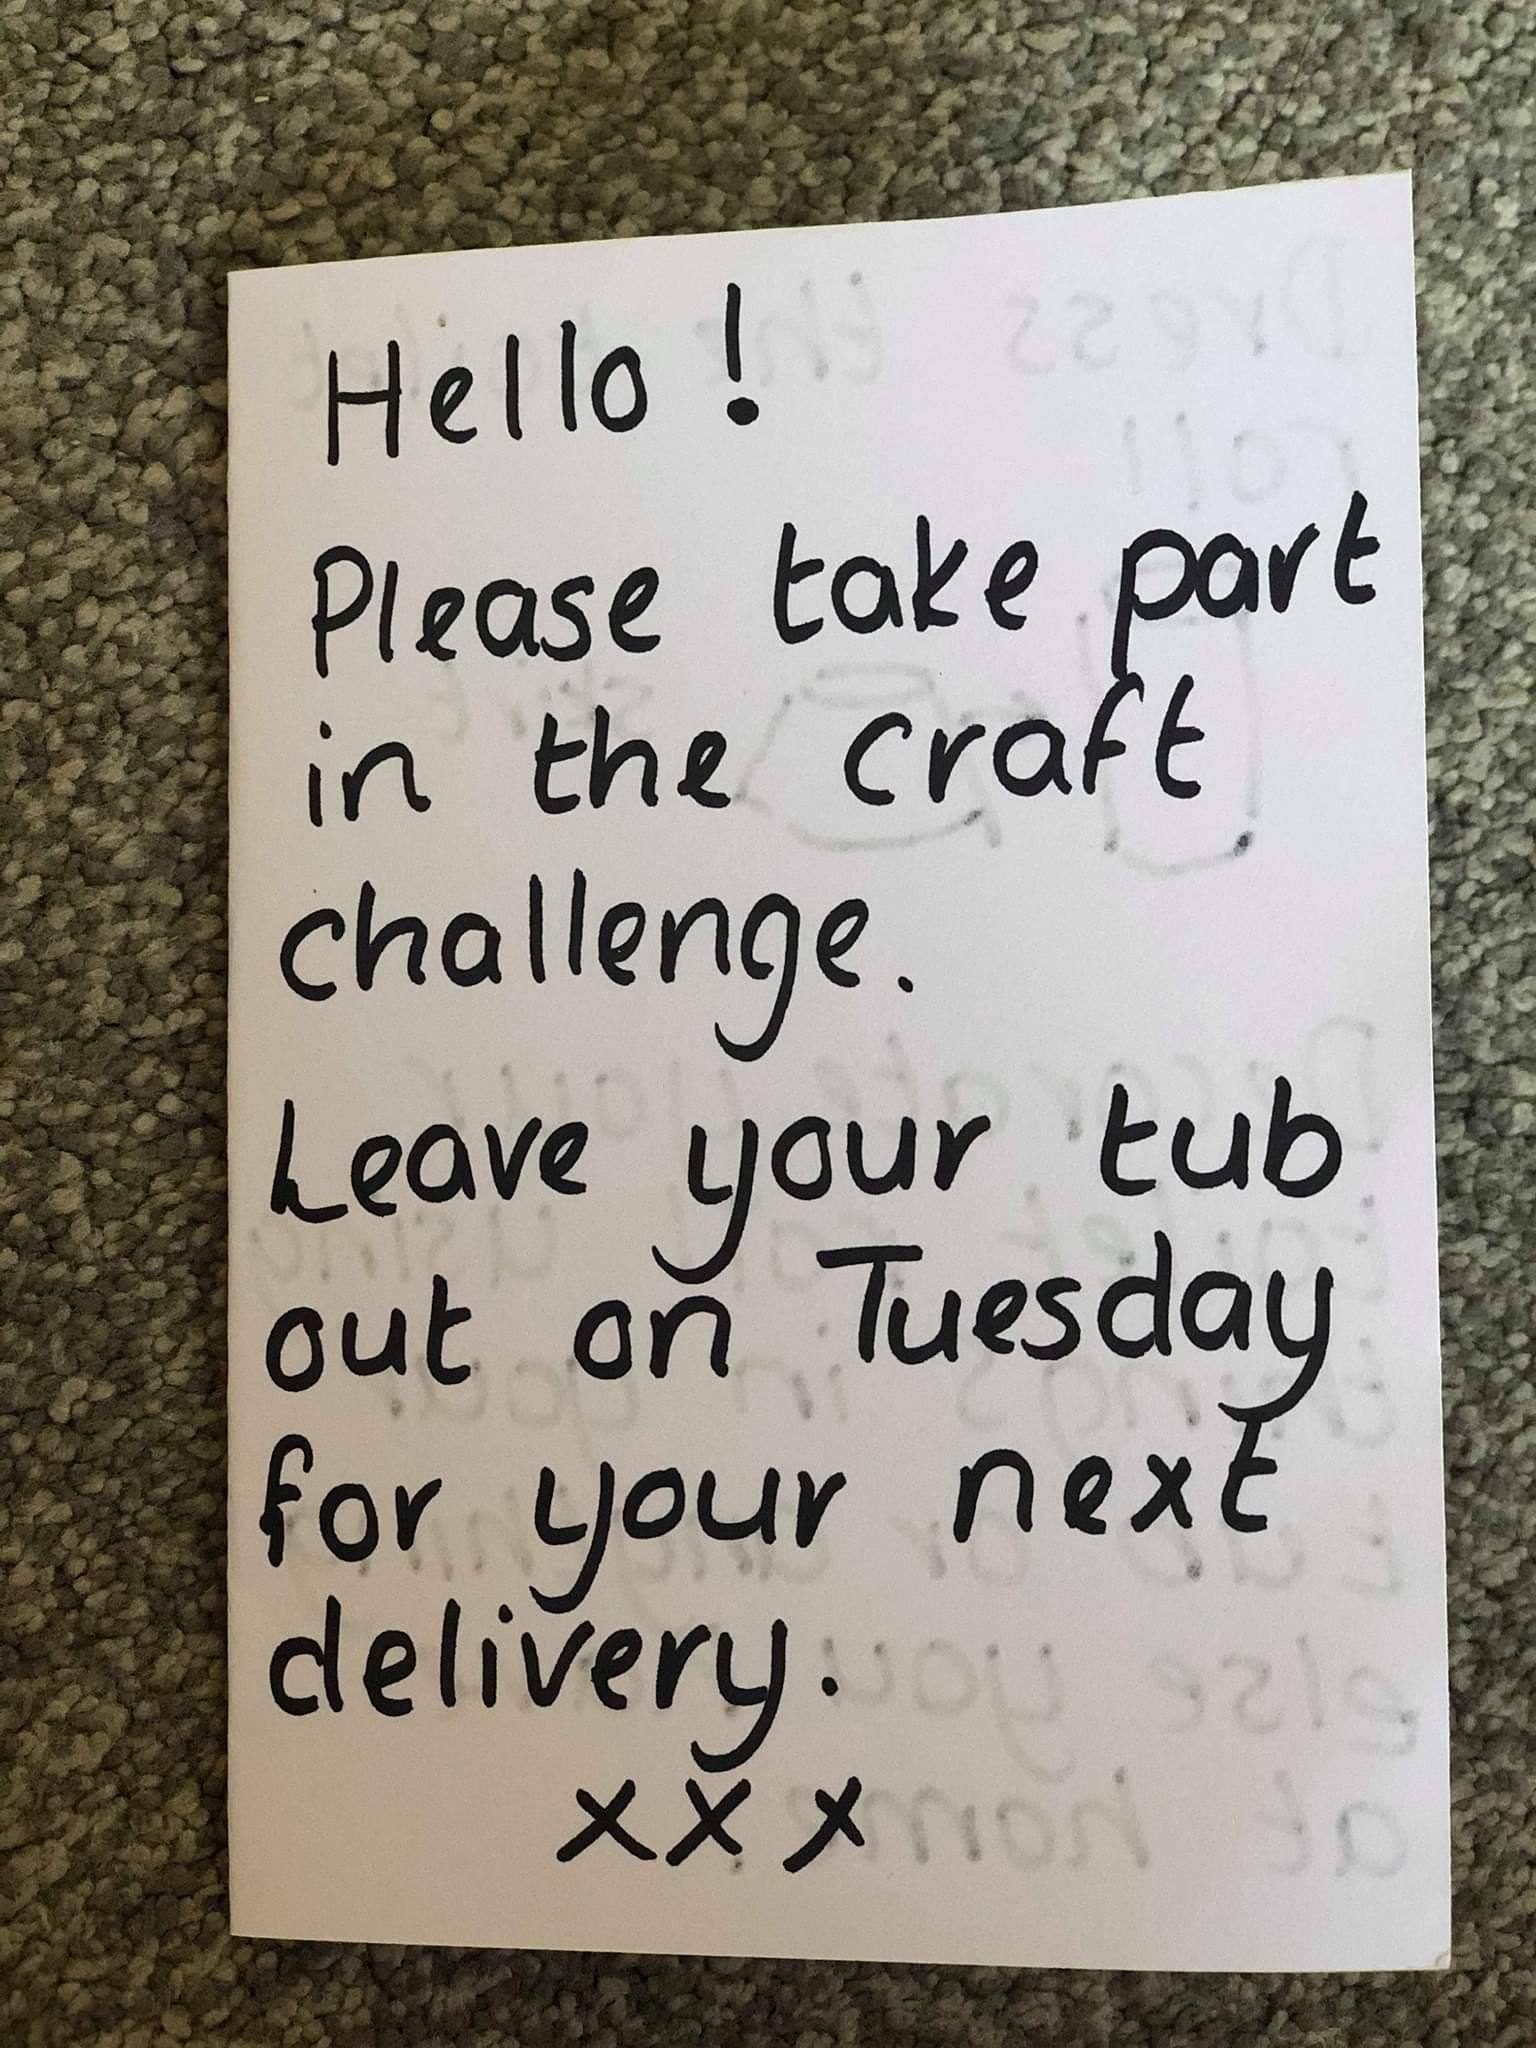 Hello!
Please take part
in the craft
challenge.
Leave your tub
out on Tuesday
for your next
delivery.
xxx